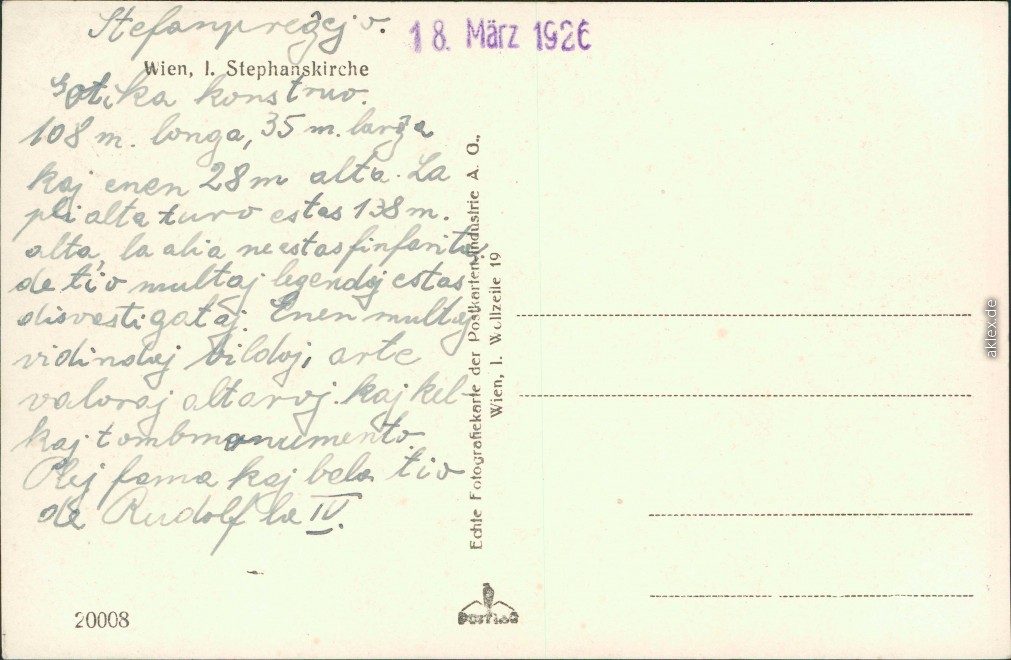 Stefanpreĝejo.
18. März 1926
Wien, I. Stephanskirche
Gotika konstruo.
108 m. longa, 35 m. larĝa
kaj enen 28 m alta. La
pli alta turo estas 138 m.
alta, la alia ne estas finfarita,
de tio multaj legendoj estas
disvastigataj. Enen multaj
vidindaj bildoj, arte
valoraj altaroj kaj kel-
kaj tombmonumento.
Plej fama kaj bela tio
de Rudolf la IV.
Echte Fotografiekarte der Postkarten-Industrie A. G.,
Wien, I. Wollzeile 19
20008
POSTIAG
aklex.de